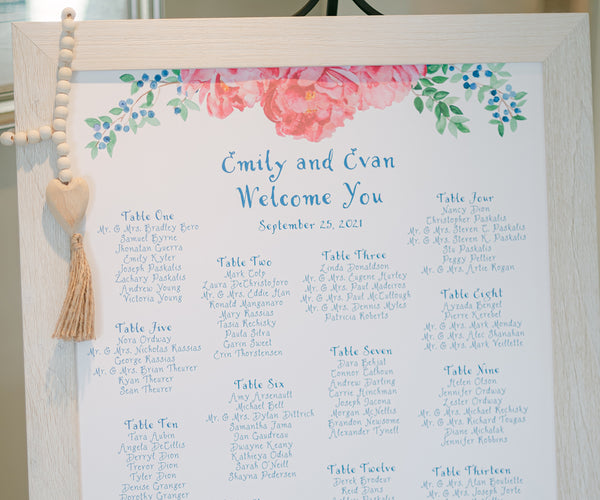 Emily and Evan
Welcome You
September 25, 2021
Table One
Mr. & Mrs. Bradley Bero
Samuel Byrne
Jhonatan Guerra
Emily Kyler
Joseph Paskalis
Zachary Paskalis
Andrew Young
Victoria Young
Table Two
Mark Colp
Laura DeChristoforo
Mr. & Mrs. Eddie Han
Ronald Manganaro
Mary Rassias
Tasia Rechisky
Paula Silva
Garin Sweet
Erin Thorstensen
Table Three
Linda Donaldson
Mr. & Mrs. Eugene Hurley
Mr. & Mrs. Paul Maderios
Mr. & Mrs. Paul McCullough
Mr. & Mrs. Dennis Myles
Patricia Roberts
Table Four
Nancy Dion
Christopher Paskalis
Mr. & Mrs. Steven C. Paskalis
Mr. & Mrs. Steven K. Paskalis
Stu Paskalis
Peggy Peltier
Mr. & Mrs. Artie Rogan
Table Five
Nora Ordway
Mr. & Mrs. Nicholas Rassias
George Rassias
Mr. & Mrs. Brian Theurer
Ryan Theurer
Sean Theurer
Table Six
Amy Arsenault
Michael Bell
Mr. & Mrs. Dylan Dittrich
Samantha Jama
Jan Gaudreau
Dwayne Keany
Katheya Odiah
Sarah O'Neill
Shayna Pedersen
Table Seven
Dara Behjat
Connor Calhoun
Andrew Darling
Carrie Hinckman
Joseph Jacona
Morgan McNellis
Brandon Newsome
Alexander Tynell
Table Eight
Ayrada Bengel
Pierre Kerebel
Mr. & Mrs. Mark Monday
Mr. & Mrs. Alec Shanahan
Mr. & Mrs. Mark Veillette
Table Nine
Helen Olsen
Jennifer Ordway
Lester Ordway
Mr. & Mrs. Michael Rechisky
Mr. & Mrs. Richard Tougas
Diane Michalak
Jennifer Robbins
Table Ten
Tara Aubin
Angela DeCillis
Derryl Dion
Trevor Dion
Tyler Dion
Dorothy Granger
Table Twelve
Derek Brodeur
Reid Dans
Table Thirteen
Mr. & Mrs. Stephen